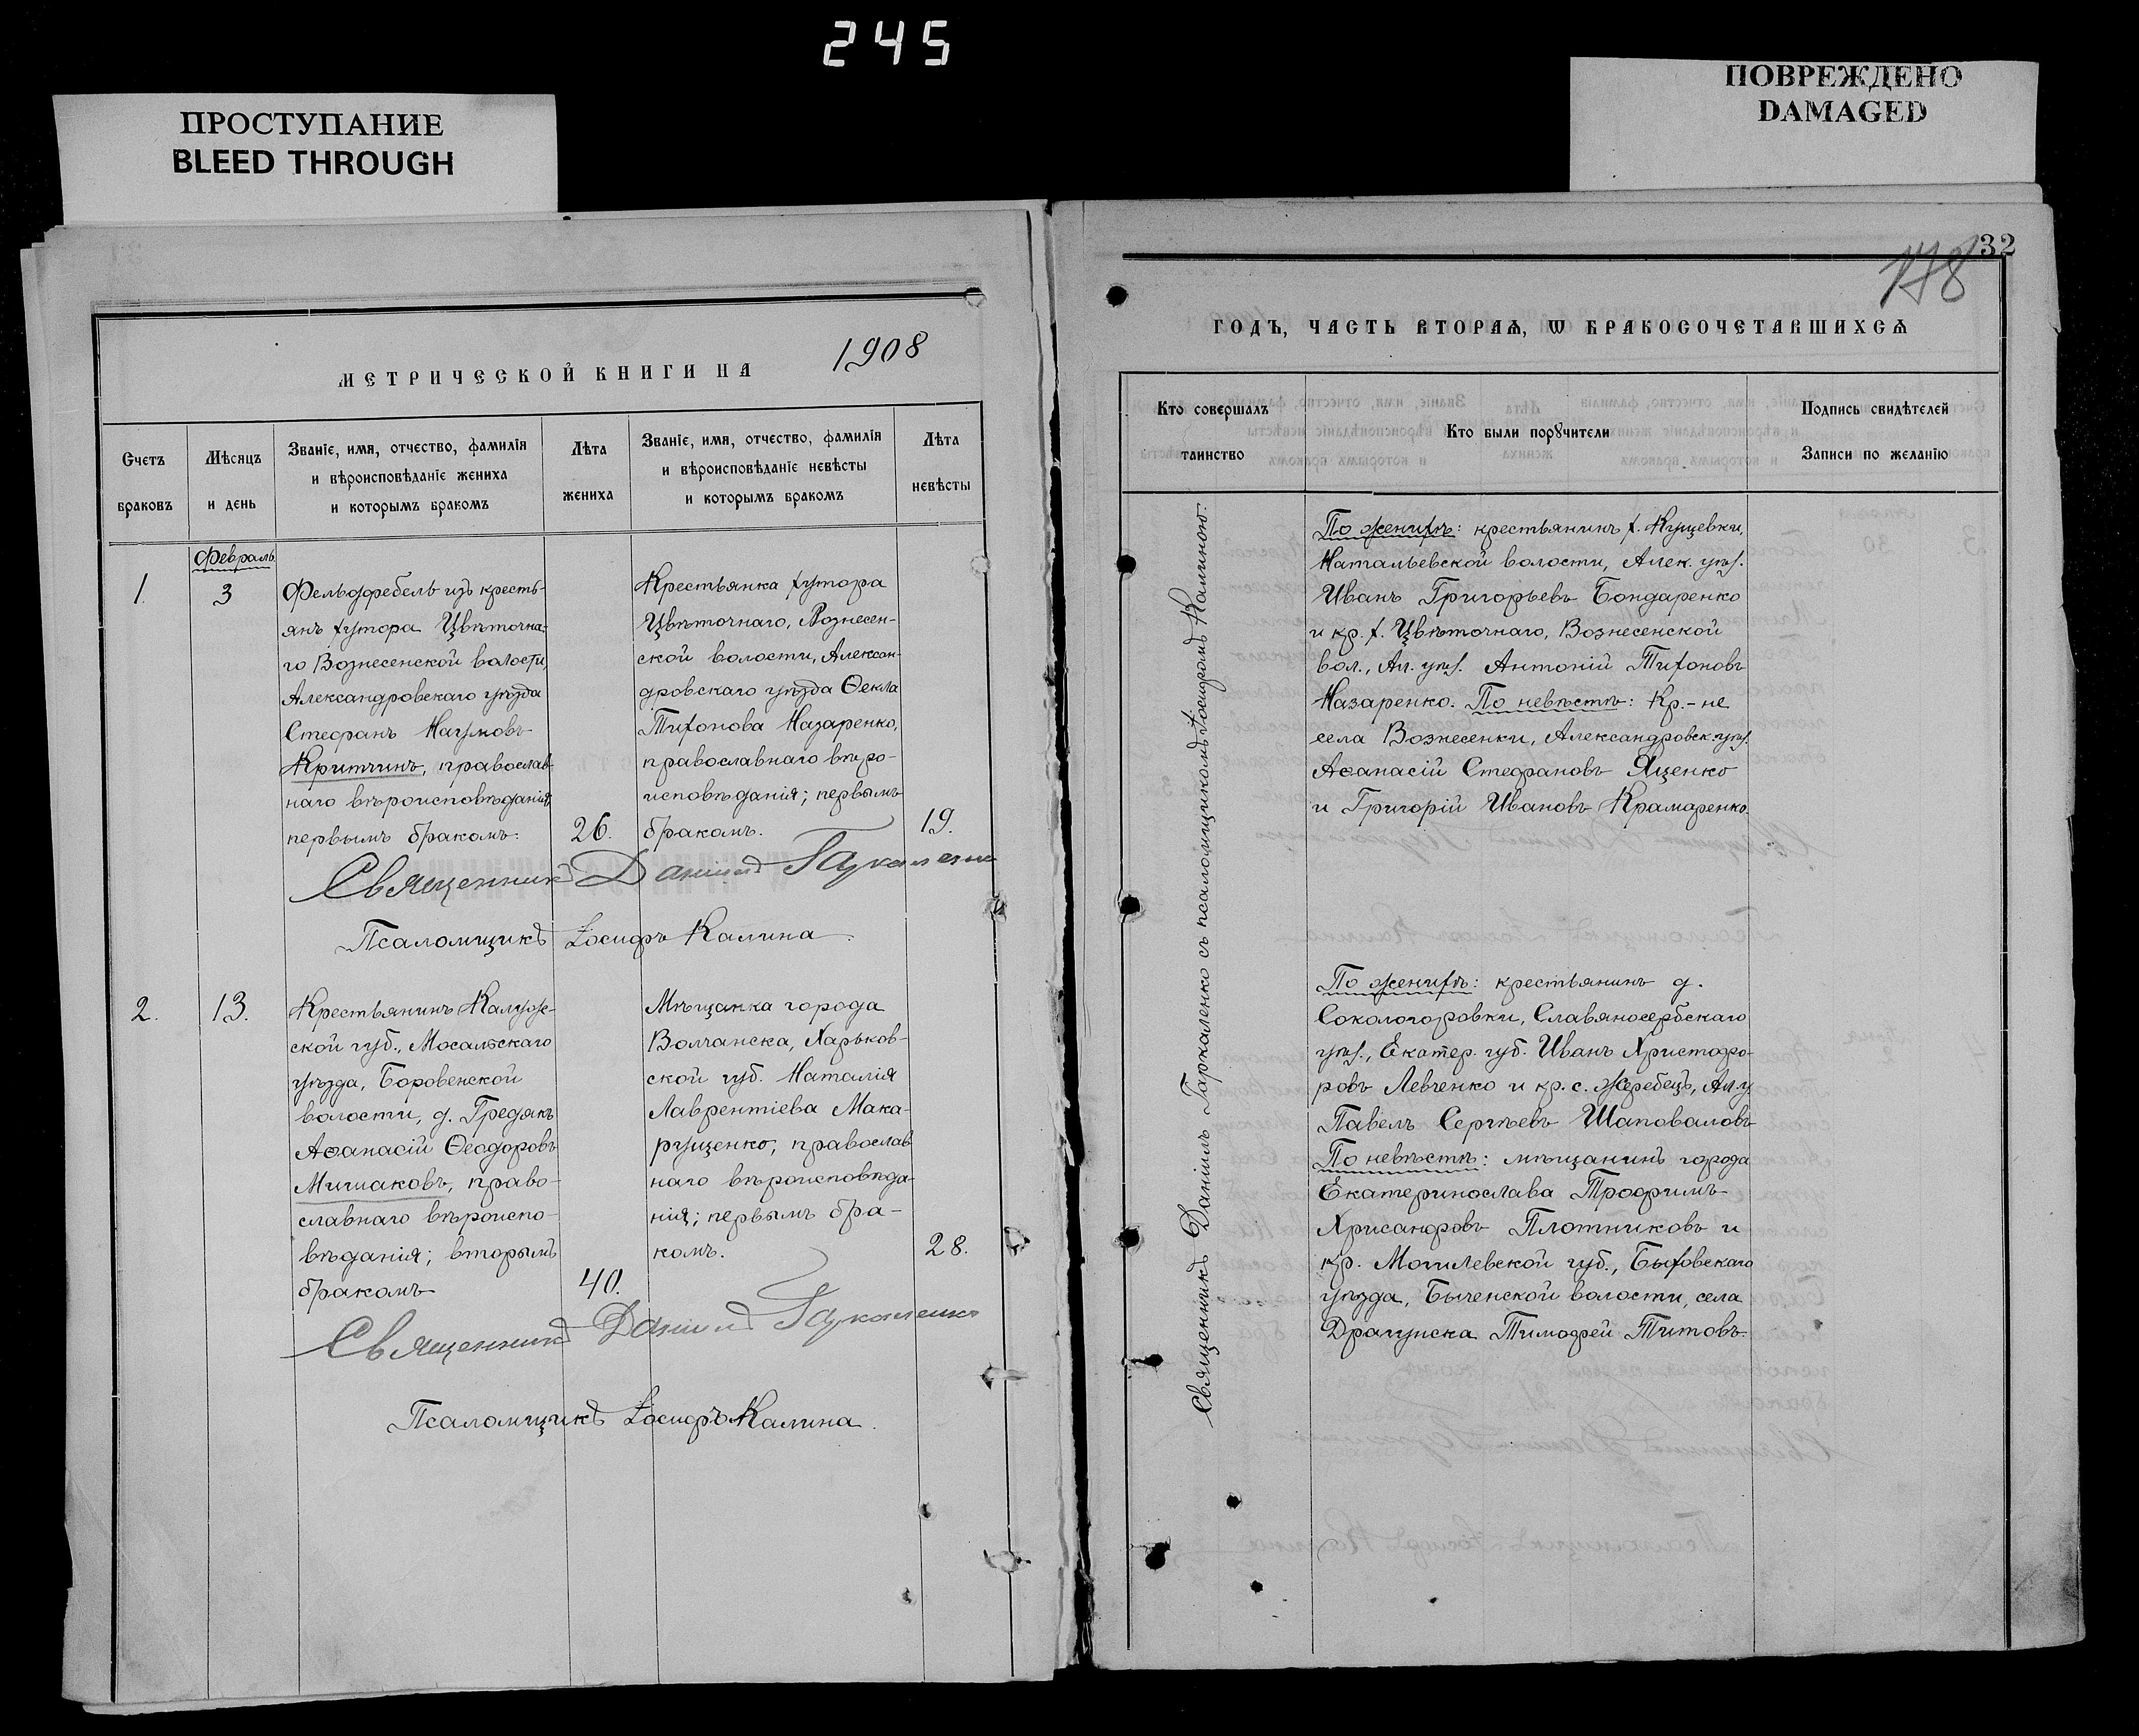 245
ПРОСТУПАНИЕ
BLEED THROUGH
ПОВРЕЖДЕНО
DAMAGED
МЕТРИЧЕСКОЙ КНИГИ НА 1908
Счетъ браковъ
Мѣсяцъ и день
Званіе, имя, отчество, фамилія
и вѣроисповѣданіе жениха
и которымъ бракомъ
Лѣта жениха
Званіе, имя, отчество, фамилія
и вѣроисповѣданіе невѣсты
и которымъ бракомъ
Лѣта невѣсты
Февраль
1.
3
Фельдфебель изъ кресть-
янъ хутора Цвѣточна-
го Вознесенской волости,
Александровскаго уѣзда
Стефанъ Наумовъ
Критчинъ, православ-
наго вѣроисповѣданія,
первымъ бракомъ.
26.
Крестьянка хутора
Цвѣточнаго, Вознесен-
ской волости, Алексан-
дровскаго уѣзда Ѳекла
Тихонова Назаренко,
православнаго вѣро-
исповѣданія; первымъ
бракомъ.
19.
Священникъ Даніилъ Гаркаленко
Псаломщикъ Іосифъ Калина.
2.
13.
Крестьянинъ Калуж-
ской губ., Мосальскаго
уѣзда, Боровенской
волости, д. Гредякъ
Аѳанасій Ѳеодоровъ
Мишаковъ, право-
славнаго вѣроиспо-
вѣданія; вторымъ
бракомъ
40.
Мѣщанка города
Волчанска, Харьков-
ской губ. Наталія
Лаврентіева Мака-
рущенко, православ
наго вѣроисповѣда-
нія; первымъ бра-
комъ.
28.
Священникъ Даніилъ Гаркаленко
Псаломщикъ Іосифъ Калина.
32
178
ГОДЪ, ЧАСТЬ ВТОРАѦ, Ѡ БРАКОСОЧЕТАВШИХСѦ
Кто совершалъ
таинство
Кто были порꙋчители
Подпись свидѣтелей
Записи по желанію
Священникъ Даніилъ Гаркаленко съ псаломщикомъ Іосифомъ Калиною.
По женихѣ: крестьянинъ х. Кущевки,
Натальевской волости, Алек. уѣз.
Иванъ Григорьевъ Бондаренко
и кр. х. Цвѣточнаго, Вознесенской
вол., Ал. уѣз. Антоній Тихоновъ
Назаренко. По невѣстѣ: Кр.-не
села Вознесенки, Александровск. уѣз.
Аѳанасій Стефановъ Яценко
и Григорій Ивановъ Крамаренко.
По женихѣ: крестьянинъ д.
Сокологоровки, Славяносербскаго
уѣз., Екатер. губ. Иванъ Христофо-
ровъ Левченко и кр. с. Жеребецъ, Ал. у.
Павелъ Сергѣевъ Шаповаловъ
По невѣстѣ: мѣщанинъ города
Екатеринослава Трофимъ
Хрисанфовъ Плотниковъ и
кр. Могилевской губ., Быховскаго
уѣзда, Быченской волости, села
Драгунска Тимофей Титовъ.